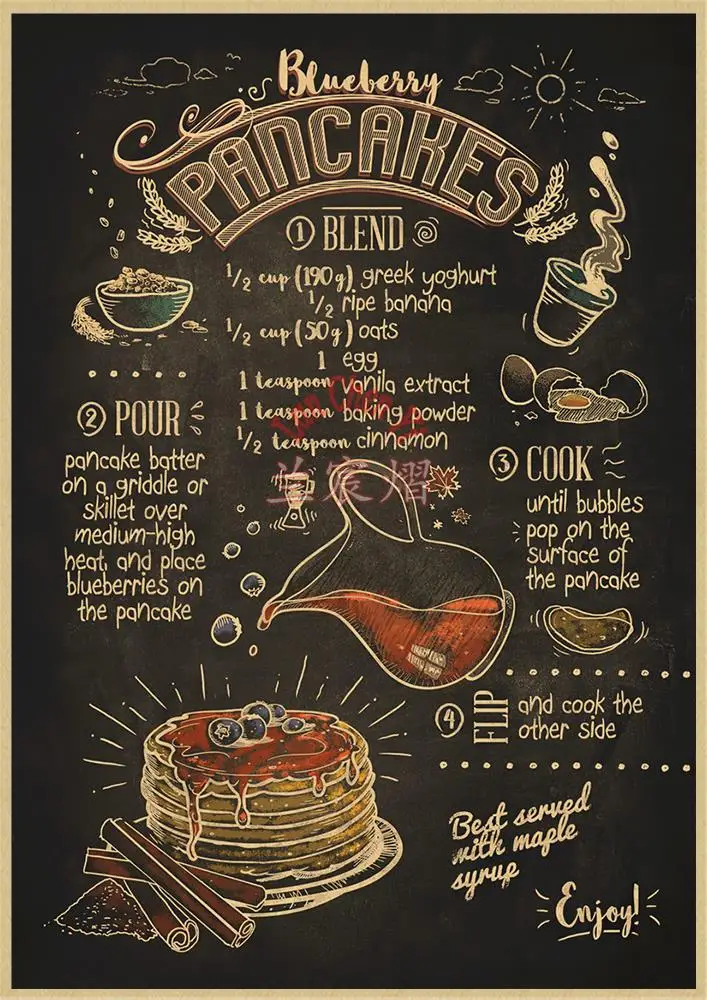 Blueberry
PANCAKES
1 BLEND
1/2 cup (190g) greek yoghurt
1/2 ripe banana
1/2 cup (50g) oats
1 egg
1 teaspoon vanila extract
1 teaspoon baking powder
1/2 teaspoon cinnamon
兰宸熠
2 POUR
pancake batter
on a griddle or
skillet over
medium-high
heat, and place
blueberries on
the pancake
3 COOK
until bubbles
pop on the
surface of
the pancake
4 FLIP
and cook the
other side
Best served
with maple
syrup
Enjoy!